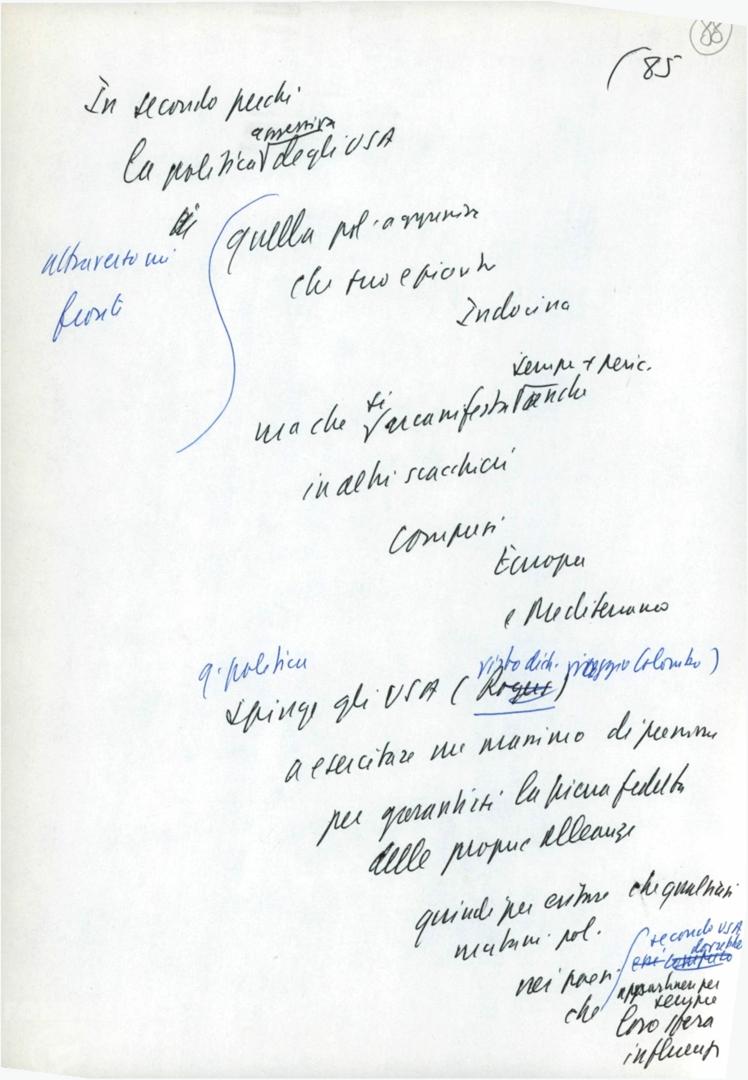 88
(85
In secondo perché
aggressiva
la politica degli USA
di
quella pol. aggressiva
attraverso vari
fronti
che suo epicentro
Indocina
sempre + peric.
ma che si manifesta anche
in altri scacchieri
compresi
Europa
e Mediterraneo
q. politica
visto dich. viaggio Colombo)
spinge gli USA (Rogers)
a esercitare un massimo di pressione
per garantirsi la piena fedeltà
delle proprie alleanze
quindi per evitare che qualsiasi
mutam. pol.
secondo USA
dovrebbe
nei paesi
che appartenere per
sempre
loro sfera
influenza